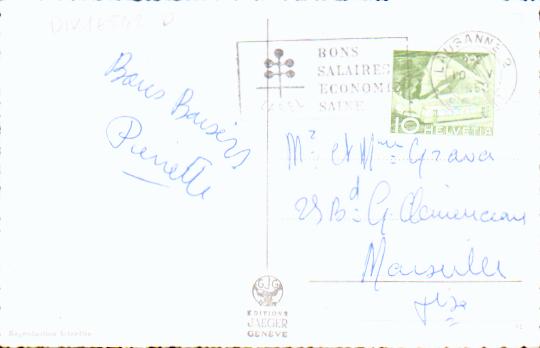 Bons Baisers
Pierrette
BONS
SALAIRES
ECONOMIE
SAINE
LAUSANNE 2
10
HELVETIA
Mr et Mme Grava
Bd G Clemenceau
Marseille
EDITIONS
JAEGER
GENÈVE
Reproduction interdite